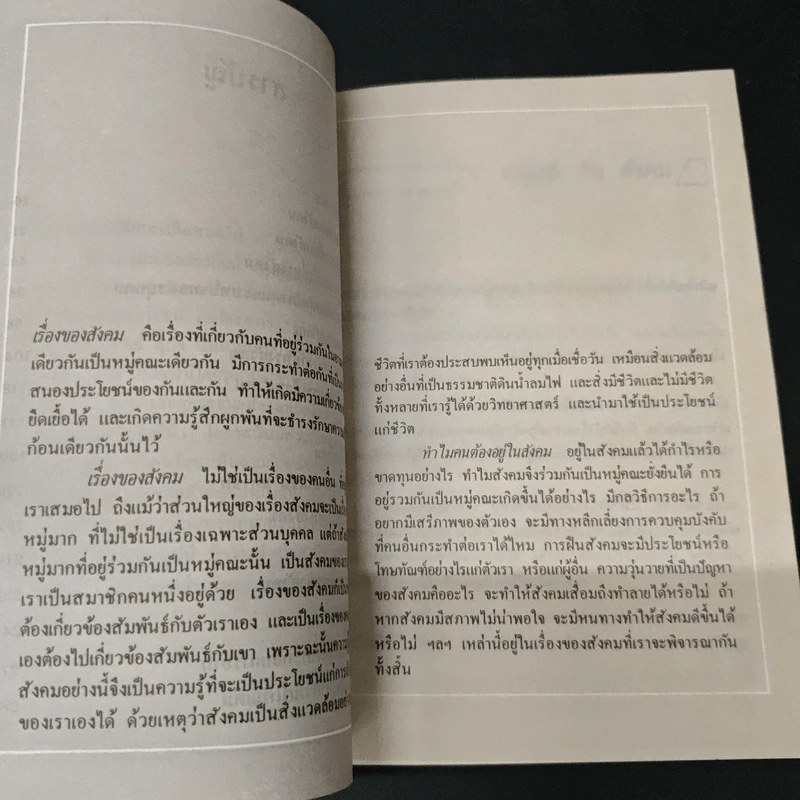 เรื่องของสังคม คือเรื่องที่เกี่ยวกับคนที่อยู่ร่วมกันใน
เดียวกันเป็นหมู่คณะเดียวกัน มีการกระทำต่อกันที่เป็น
สนองประโยชน์ของกันและกัน ทำให้เกิดมีความเกี่ยวข้อง
ยืดเยื้อได้ และเกิดความรู้สึกผูกพันที่จะธำรงรักษาความ
ก้อนเดียวกันนั้นไว้
เรื่องของสังคม ไม่ใช่เป็นเรื่องของคนอื่น
เราเสมอไป ถึงแม้ว่าส่วนใหญ่ของเรื่องสังคมจะเป็น
หมู่มาก ที่ไม่ใช่เป็นเรื่องเฉพาะส่วนบุคคล แต่ถ้า
หมู่มากที่อยู่ร่วมกันเป็นหมู่คณะนั้น เป็นสังคมของ
เราเป็นสมาชิกคนหนึ่งอยู่ด้วย เรื่องของสังคมก็เป็น
ต้องเกี่ยวข้องสัมพันธ์กับตัวเราเอง และเป็นเรื่องของ
เองต้องไปเกี่ยวข้องสัมพันธ์กับเขา เพราะฉะนั้นความ
สังคมอย่างนี้จึงเป็นความรู้ที่จะเป็นประโยชน์แก่การ
ของเราเองได้ ด้วยเหตุว่าสังคมเป็นสิ่งแวดล้อม
ชีวิตที่เราต้องประสบพบเห็นอยู่ทุกเมื่อเชื่อวัน เหมือนสิ่งแวดล้อม
อย่างอื่นที่เป็นธรรมชาติดินน้ำลมไฟ และสิ่งมีชีวิตและไม่มีชีวิต
ทั้งหลายที่เรารู้ได้ด้วยวิทยาศาสตร์ และนำมาใช้เป็นประโยชน์
แก่ชีวิต
ทำไมคนต้องอยู่ในสังคม อยู่ในสังคมแล้วได้กำไรหรือ
ขาดทุนอย่างไร ทำไมสังคมจึงร่วมกันเป็นหมู่คณะยั่งยืนได้ การ
อยู่รวมกันเป็นหมู่คณะเกิดขึ้นได้อย่างไร มีกลวิธีการอะไร ถ้า
อยากมีเสรีภาพของตัวเอง จะมีทางหลีกเลี่ยงการควบคุมบังคับ
ที่คนอื่นกระทำต่อเราได้ไหม การฝืนสังคมจะมีประโยชน์หรือ
โทษทัณฑ์อย่างไรแก่ตัวเรา หรือแก่ผู้อื่น ความวุ่นวายที่เป็นปัญหา
ของสังคมคืออะไร จะทำให้สังคมเสื่อมถึงทำลายได้หรือไม่ ถ้า
หากสังคมมีสภาพไม่น่าพอใจ จะมีหนทางทำให้สังคมดีขึ้นได้
หรือไม่ ฯลฯ เหล่านี้อยู่ในเรื่องของสังคมที่เราจะพิจารณากัน
ทั้งสิ้น